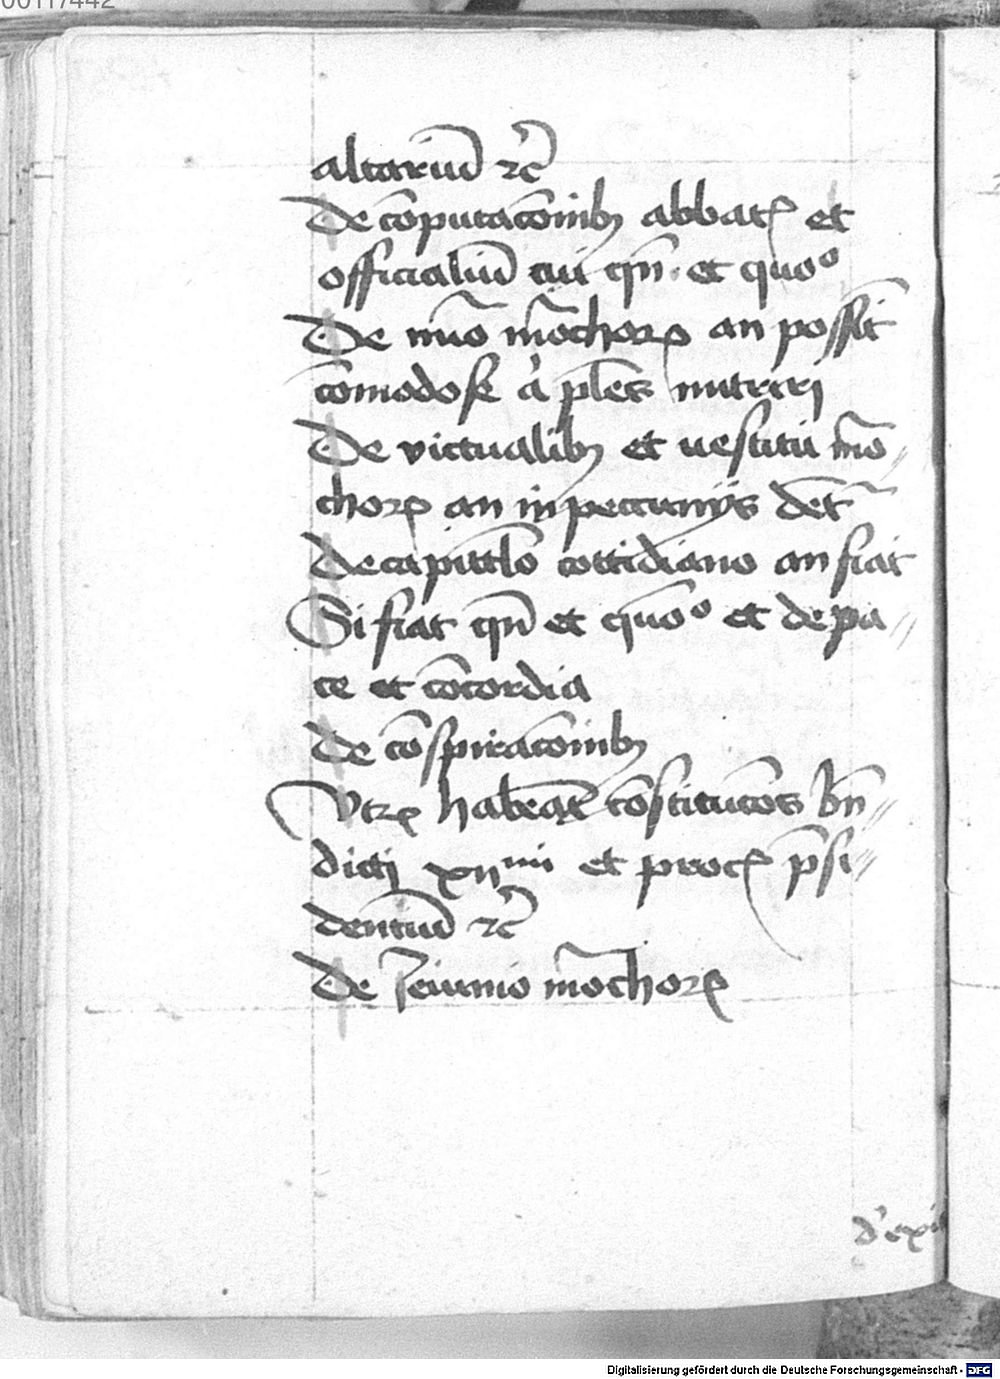 00117442
altariu͂ ꝛc̄
De co͂putac͂oinibꝫ abbatꝭ et
officialiu͂ cui qn͂ · et quo°
De nu͂o mo͂choꝝ an possit
co͂modose a͛ pl͂es nutriri
De victualibꝫ et vestitu mo͂ //
choꝝ an in peccunijs det͂
De capittl͂o cottidiano an fiat
Si fiat qn͂ et quo͂° et de pa //
ce et co͂cordia
De co͂spirac͂oinibꝫ
Vtꝝ habeat͂ co͂stituc͂o͂es bn͂ //
dicti xijᵐⁱ et procꝭ p͂si //
dentiu͂ ꝛc̄
De Ieiunio mo͂choꝝ
d' exi
Digitalisierung gefördert durch die Deutsche Forschungsgemeinschaft - DFG